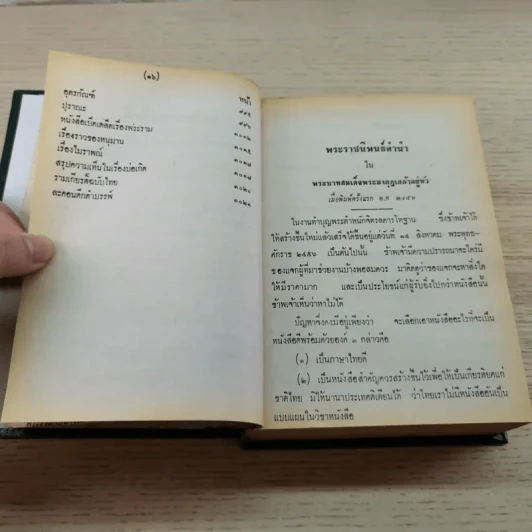 (๑๖)
หน้า
อุตรกัณฑ์ ๙๙๕
ปุราณะ ๙๙๖
หนังสือเบ็ดเตล็ดเรื่องพระราม ๑๐๑๒
เรื่องราวของหนุมาน ๑๐๑๕
เรื่องไมราพณ์ ๑๐๑๘
สรุปความเห็นในเรื่องบ่อเกิด ๑๐๑๘
รามเกียรติ์ฉบับไทย ๑๐๒๐
ละคอนดึกดำบรรพ์ ๑๐๒๑
พระราชนิพนธ์คำนำ
ใน
พระบาทสมเด็จพระมงกุฎเกล้าเจ้าอยู่หัว
เมื่อพิมพ์ครั้งแรก พ.ศ. ๒๔๕๖
ในงานทำบุญพระตำหนักจิตรลดารโหฐาน ซึ่งข้าพเจ้าได้
ให้สร้างขึ้นใหม่แล้วเสร็จได้ขึ้นอยู่แต่วันที่ ๑๕ สิงหาคม พระพุทธ–
ศักราช ๒๔๕๖ เป็นต้นไปนั้น ข้าพเจ้ามีความปรารถนาจะใคร่มี
ของแจกผู้ที่มาช่วยงานบ้างพอสมควร มาคิดดูว่าของแจกจะหาสิ่งใด
ให้มีราคามาก และเป็นประโยชน์แก่ผู้รับยิ่งไปกว่าหนังสือนั้น
ข้าพเจ้าเห็นว่าหาไม่ได้
ปัญหาจึ่งคงมีอยู่เพียงว่า จะเลือกเอาหนังสืออะไรที่จะเป็น
หนังสือดีพร้อมด้วยองค์ ๓ กล่าวคือ
(๑) เป็นภาษาไทยดี
(๒) เป็นหนังสือสำคัญควรสร้างขึ้นไว้เพื่อให้เป็นเกียรติยศแก่
ชาติไทย มิให้นานาประเทศติเตียนได้ ว่าไทยเราไม่มีหนังสืออันเป็น
แบบแผนในวิชาหนังสือ